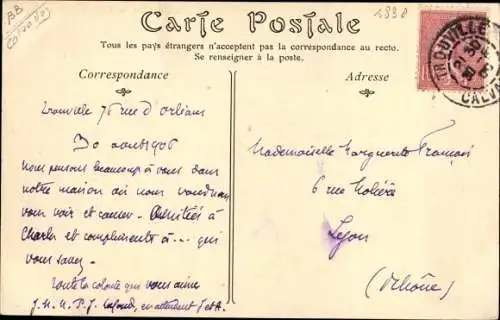 BB
Calvados
1898
Carte Postale
Tous les pays étrangers n'acceptent pas la correspondance au recto.
Se renseigner à la poste.
Correspondance
Trouville 76 rue d'Orléans
30 aout 1906
Nous pensons beaucoup à vous dans
notre maison où nous voudrions
vous voir et causer. Amitiés à
Charles et compliments à ... qui
vous savez.
Toute la colonie que vous aime
J. M. M. P. J. en attendant J et A.
Adresse
TROUVILLE
CALVA
Mademoiselle Marguerite François
6 rue Molière
Lyon
(Rhône)